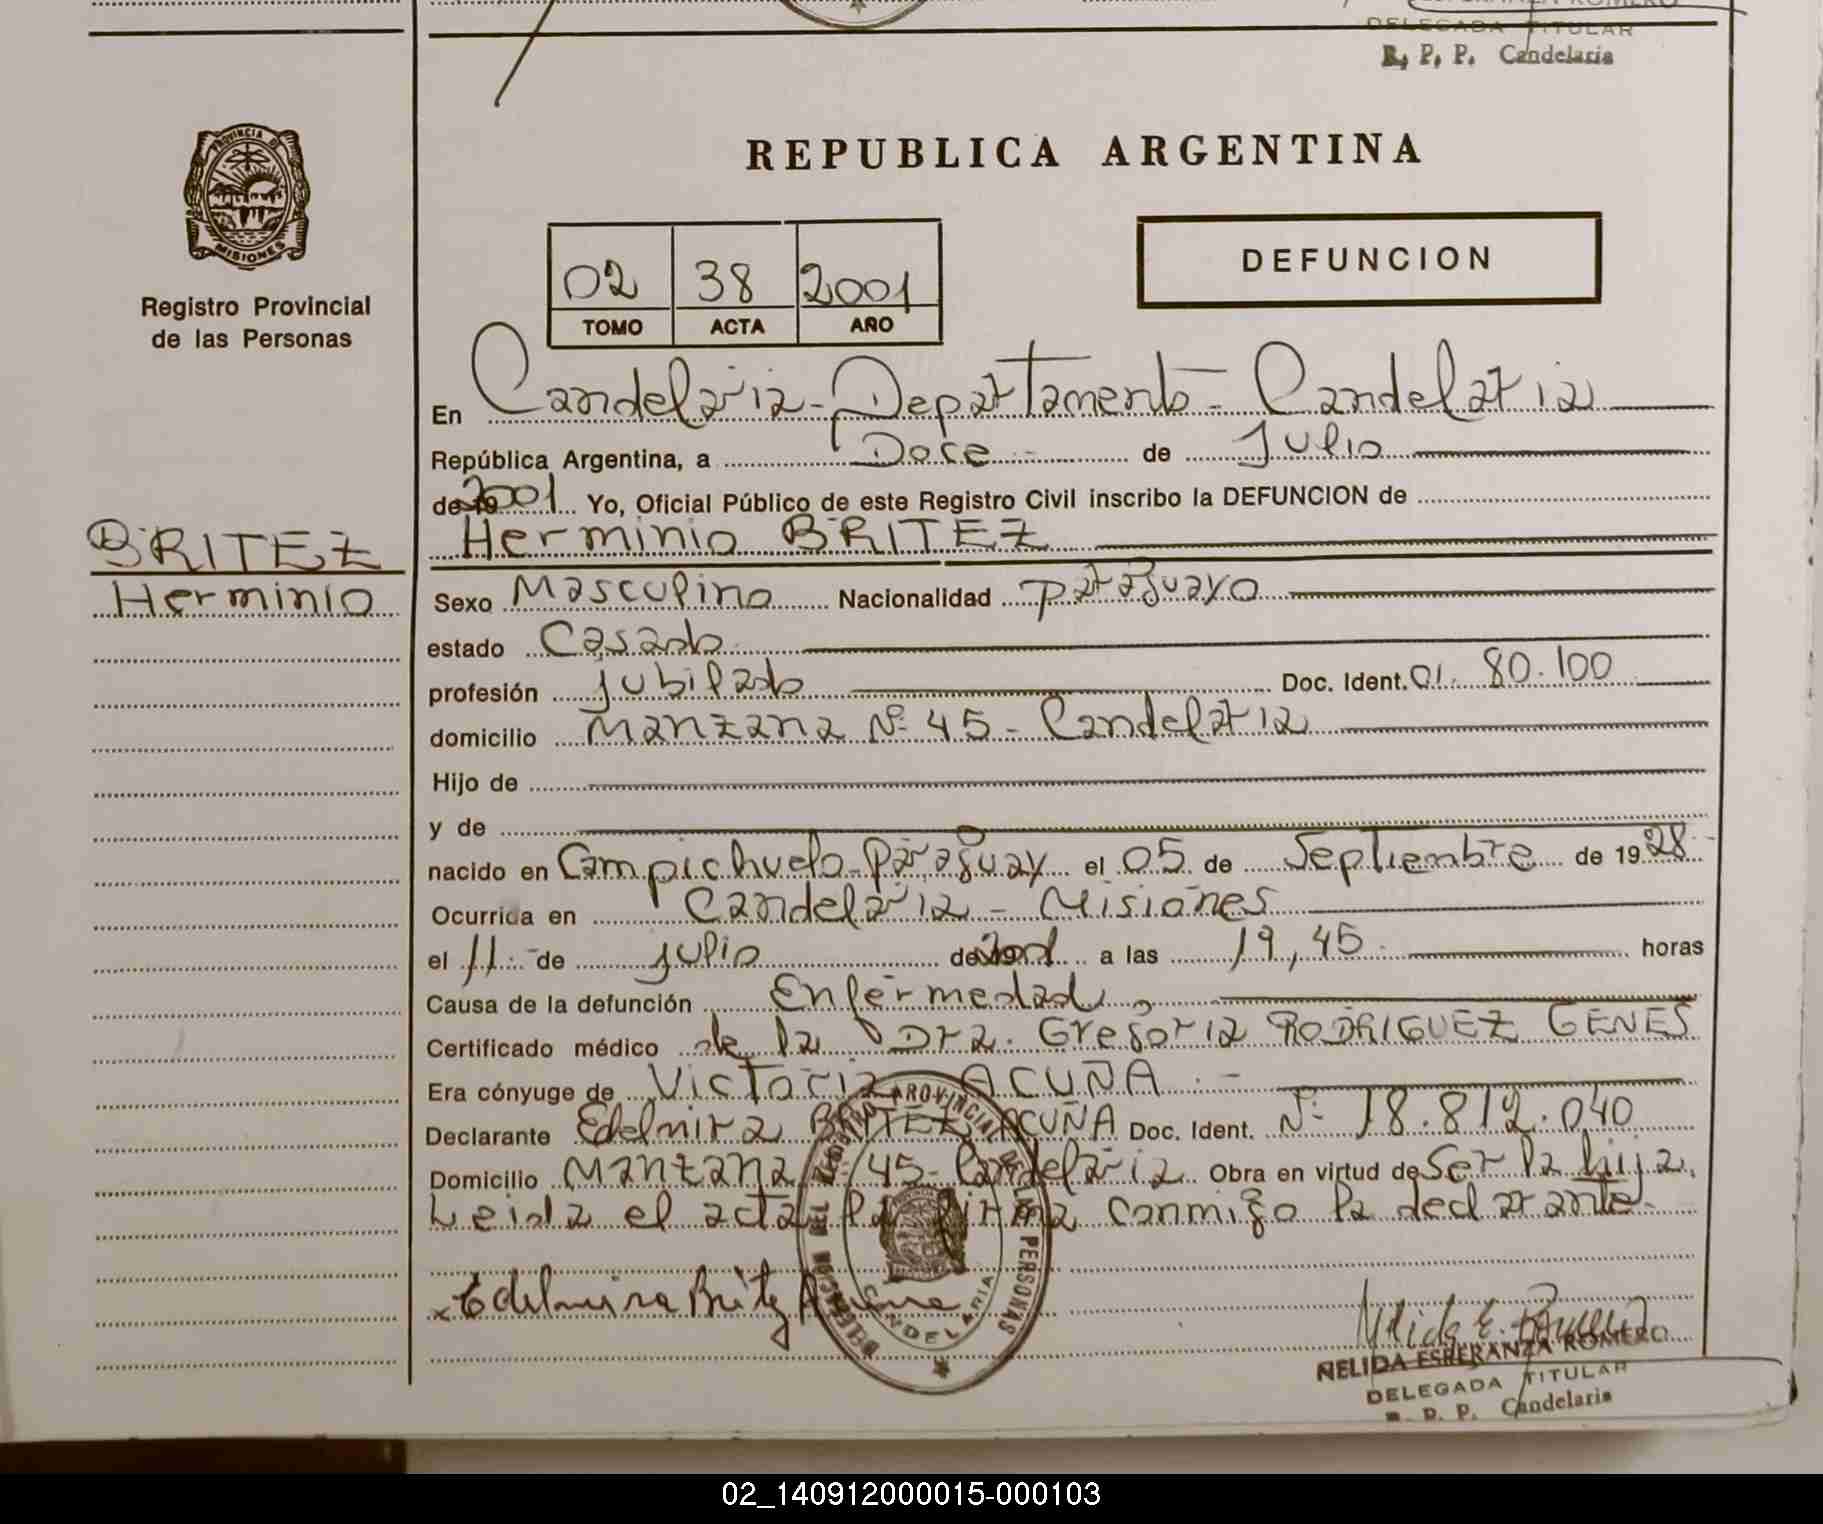 DELEGADA TITULAR
R. P. P. Candelaria
PROVINCIA D
MISIONES
Registro Provincial
de las Personas
REPUBLICA ARGENTINA
02 38 2001
TOMO ACTA AÑO
DEFUNCION
En Candelaria - Departamento - Candelaria
República Argentina, a Doce de Julio
de 2001 Yo, Oficial Público de este Registro Civil inscribo la DEFUNCION de
Herminio BRITEZ
BRITEZ
Herminio
Sexo Masculino Nacionalidad paraguayo
estado Casado
profesión jubilado Doc. Ident. 01. 80.100
domicilio Manzana Nº 45 - Candelaria
Hijo de
y de
nacido en Campichuelo - Paraguay el 05 de Septiembre de 1928
Ocurrida en Candelaria - Misiones
el 11 - de julio de 2001 a las 19,45 horas
Causa de la defunción Enfermedad
Certificado médico de la Dra. Gregoria RODRIGUEZ GENES
Era cónyuge de Victoria ACUÑA . -
Declarante Edelmira BRITEZ ACUÑA Doc. Ident. Nº 18.812.040
Domicilio Manzana 45 - Candelaria Obra en virtud de Ser la hija.
Leida el acta la firma conmigo la declarante -
x Edelmira Britez Acuña
DELEGACION DEL REGISTRO PROVINCIAL DE LAS PERSONAS
CANDELARIA
Nelida E. Romero
NELIDA ESPERANZA ROMERO
DELEGADA TITULAR
R. P. P. Candelaria
02_140912000015-000103